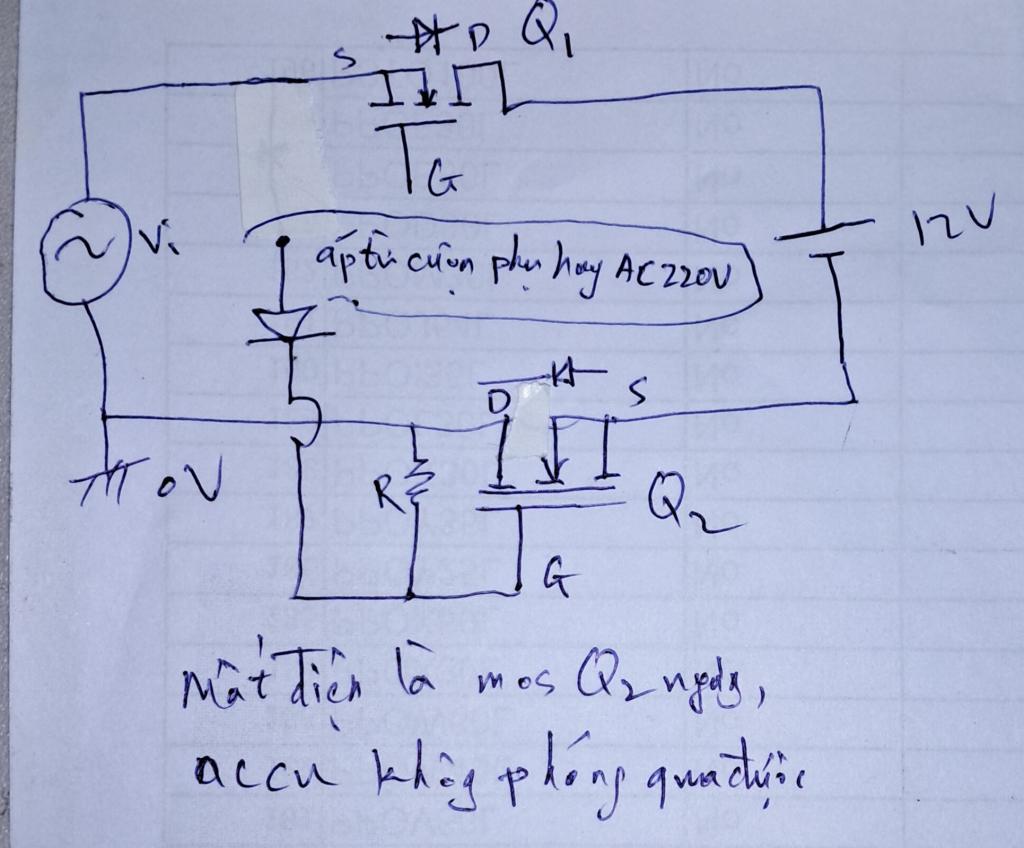 D Q1
S
G
Vi
12V
áp từ cuộn phụ hay AC220V
D S
0V
R
Q2
G
Mất điện là mos Q2 ngắt,
accu không phóng qua được